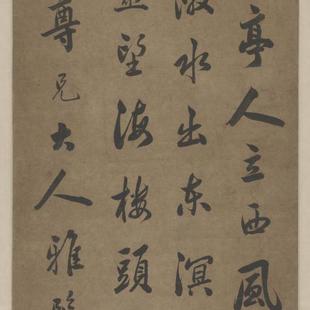 亭人立西風
水出東溟
望海樓頭
尊兄大人雅